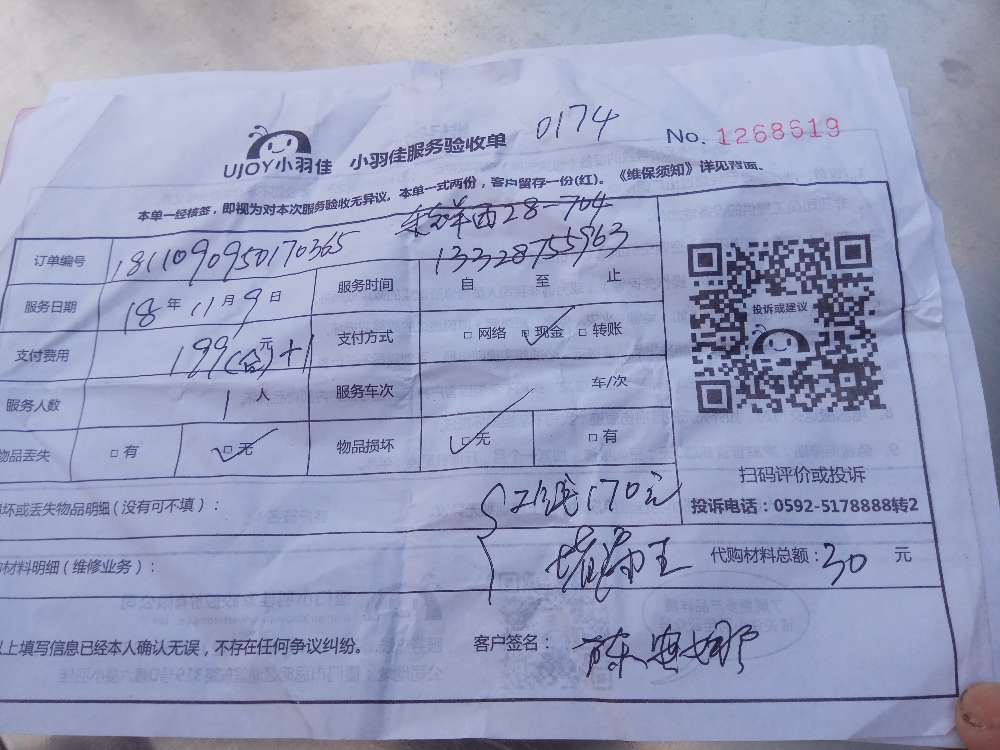 0174
UJOY小羽佳 小羽佳服务验收单 No. 1268619
本单一经核签，即视为对本次服务验收无异议。本单一式两份，客户留存一份(红)。《维保须知》详见背面。
西28-704
13328755963
订单编号 1811090950170365
服务日期 18年11月9日 服务时间 自 至 止
支付费用 199(含)元+1 支付方式 □ 网络 □ 现金 □ 转账
服务人数 1人 服务车次 车/次
物品丢失 □ 有 □ 无 物品损坏 □ 无 □ 有
投诉或建议
扫码评价或投诉
投诉电话：0592-5178888转2
坏或丢失物品明细（没有可不填）：
170元
材料明细（维修业务）：
堵漏王 代购材料总额：30 元
上填写信息已经本人确认无误，不存在任何争议纠纷。
客户签名： 陈安娜